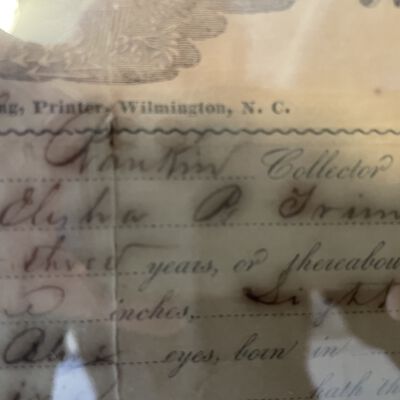 ng, Printer, Wilmington, N. C.
Rankin Collector
Elisha B Trim
three years, or thereabou
inches, Light
Blue eyes, born in
oath th